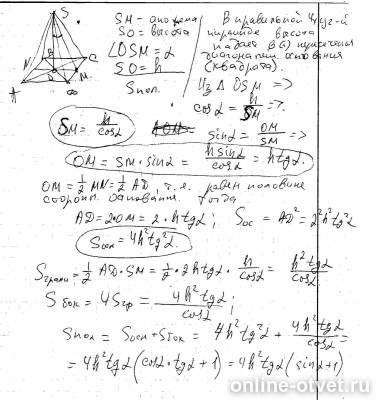 S
SM - апофема
SO - высота
∠OSM = α
SO = h
Sпол.
В правильной 4уг-й
пирамиде высота
падает в (·) пересечения
диагоналей основания
(квадрата).
N
B
C
O
M
A
Из Δ OSM ⇒
cosα = h/SM ⇒
SM = h/cosα
sinα = OM/SM ⇒
OM = SM·sinα = h sinα/cosα = h tgα.
OM = ½ MN = ½ AD, т.е. равен половине
стороны основания. Тогда
AD = 2·OM = 2·h tgα; Sос = AD² = 2²h²tg²α
Sосн = 4h²tg²α.
Sграни = ½ AD·SM = ½·2h tgα·h/cosα = h²tgα/cosα
Sбок = 4Sгр = 4h²tgα/cosα;
Sпол = Sосн + Sбок = 4h²tg²α + 4h²tgα/cosα =
= 4h²tgα(cosα·tgα + 1) = 4h²tgα(sinα+1)
online-otvet.ru